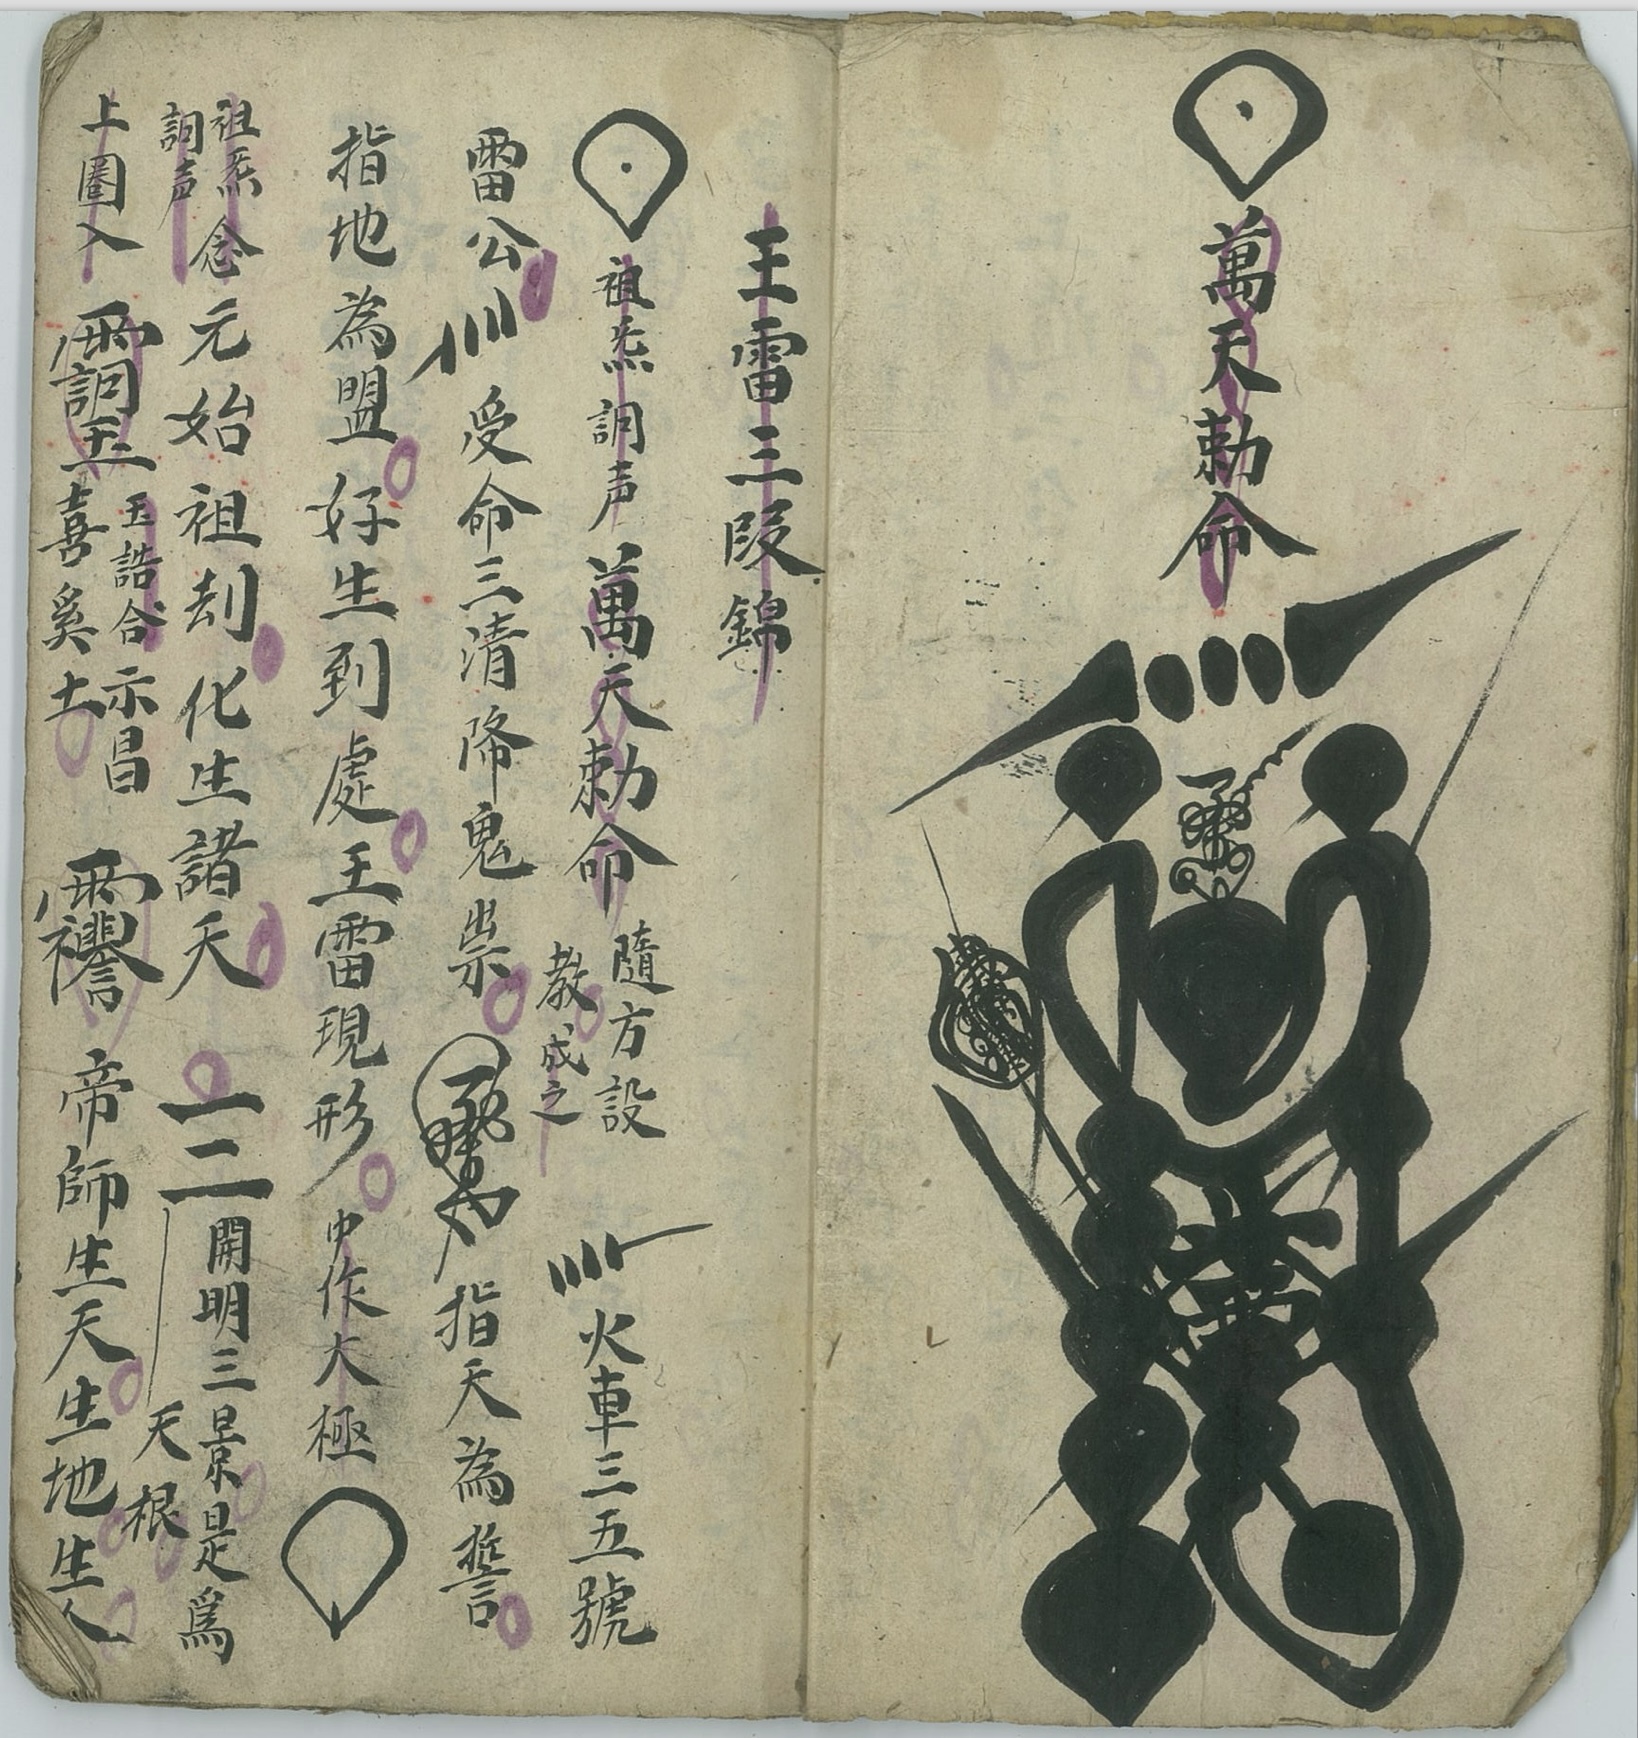 萬天勅命
王雷三段錦
祖炁 詞声 萬天勅命 隨方設教成之 火車三五號
雷公 受命三清降鬼祟 指天為誓
指地為盟好生到處王雷現形 中作大極
祖炁詞声 念元始祖刦化生諸天 一二開明三景是爲天根
上圈入 玉誥合示昌 喜奚土 帝師生天生地生人